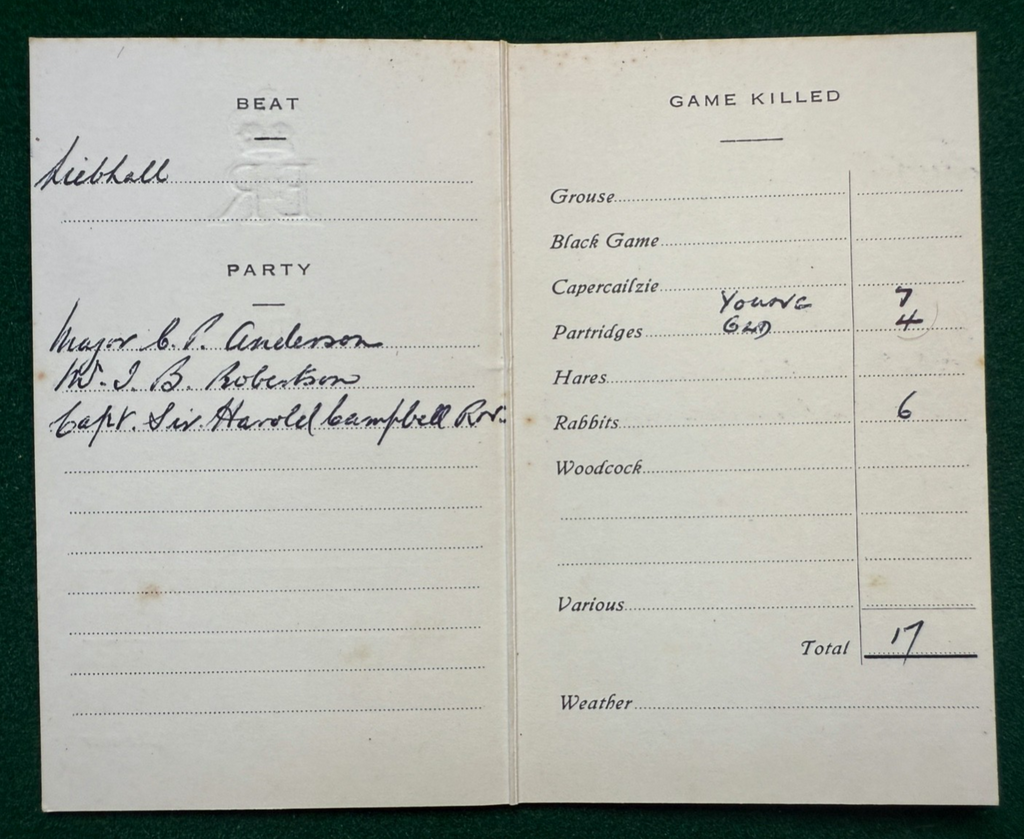 BEAT
PARTY
Major C. P. Anderson
B. Robertson
Capt. Sir Harold Campbell
GAME KILLED
Grouse
Black Game
Capercailzie
Young 7
Partridges OLD 4
Hares
Rabbits 6
Woodcock
Various
Total 17
Weather